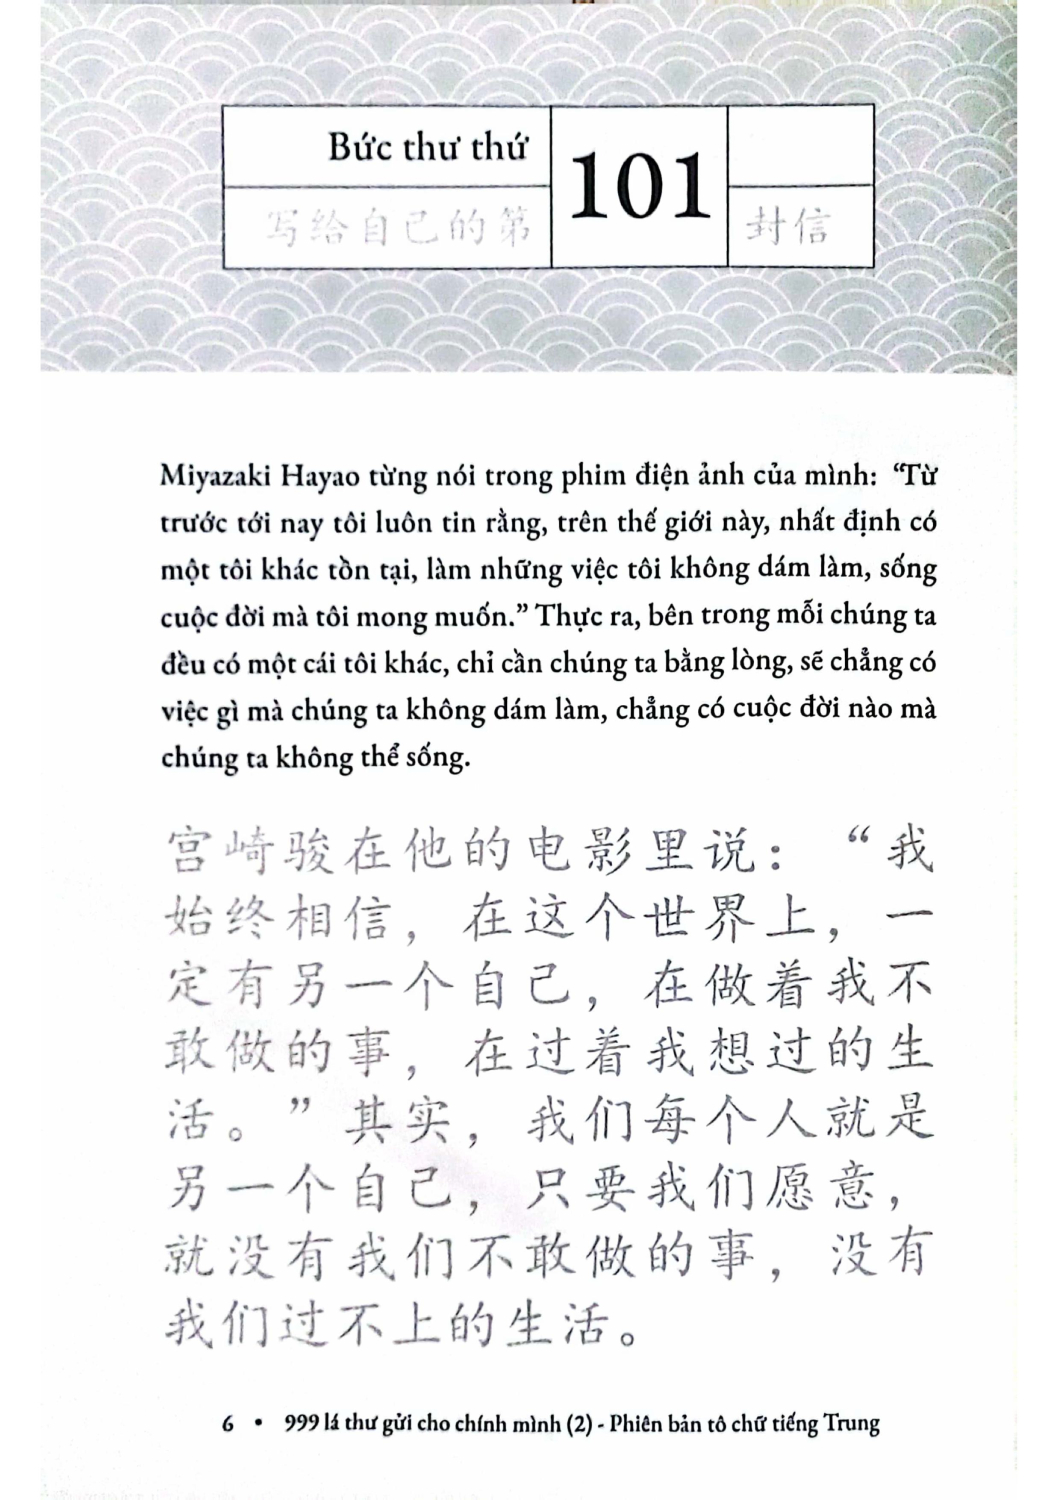 Bức thư thứ
101
写给自己的第
封信
Miyazaki Hayao từng nói trong phim điện ảnh của mình: “Từ
trước tới nay tôi luôn tin rằng, trên thế giới này, nhất định có
một tôi khác tồn tại, làm những việc tôi không dám làm, sống
cuộc đời mà tôi mong muốn.” Thực ra, bên trong mỗi chúng ta
đều có một cái tôi khác, chỉ cần chúng ta bằng lòng, sẽ chẳng có
việc gì mà chúng ta không dám làm, chẳng có cuộc đời nào mà
chúng ta không thể sống.
宫崎骏在他的电影里说：“我
始终相信，在这个世界上，一
定有另一个自己，在做着我不
敢做的事，在过着我想过的生
活。”其实，我们每个人就是
另一个自己，只要我们愿意，
就没有我们不敢做的事，没有
我们过不上的生活。
6 • 999 lá thư gửi cho chính mình (2) - Phiên bản tô chữ tiếng Trung